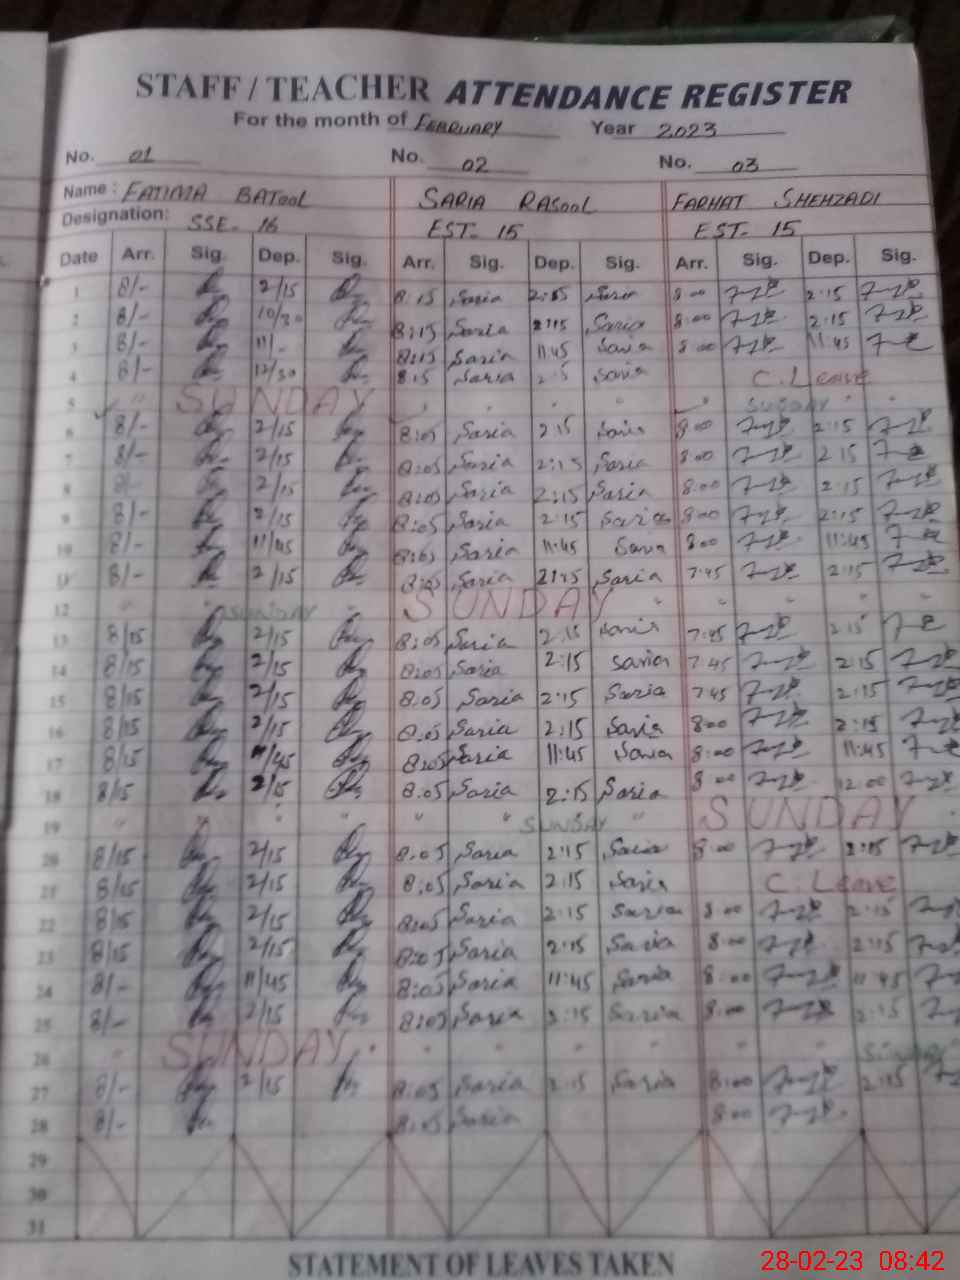 STAFF / TEACHER ATTENDANCE REGISTER
For the month of FEBRUARY Year 2023
No. 01 No. 02 No. 03
Name : FATIMA BATOOL SARIA RASOOL FARHAT SHEHZADI
Designation: SSE- 16 EST- 15 EST- 15
Date Arr. Sig. Dep. Sig. Arr. Sig. Dep. Sig. Arr. Sig. Dep. Sig.
1 8/- 2/15 8:15 Saria 2:15 Saria 8:00 2:15
2 8/- 10/30 8:15 Saria 2:15 Saria 8:00 2:15
3 8/- 11/- 8:15 Saria 11:45 Saria 8:00 11:45
4 8/- 12/30 8:15 Saria 2:15 Saria C. Leave
5 " SUNDAY " " " " SUNDAY " "
6 8/- 2/15 8:05 Saria 2:15 Saria 8:00 2:15
7 8/- 2/15 8:05 Saria 2:15 Saria 8:00 2:15
8 8/- 2/15 8:05 Saria 2:15 Saria 8:00 2:15
9 8/- 2/15 8:05 Saria 2:15 Saria 8:00 2:15
10 8/- 11/45 8:05 Saria 11:45 Saria 8:00 11:45
11 8/- 2/15 8:05 Saria 2:15 Saria 7:45 2:15
12 " " SUNDAY " SUNDAY " " " "
13 8/15 2/15 8:05 Saria 2:15 Saria 7:45 2:15
14 8/15 2/15 8:05 Saria 2:15 Saria 7:45 2:15
15 8/15 2/15 8:05 Saria 2:15 Saria 7:45 2:15
16 8/15 2/15 8:05 Saria 2:15 Saria 8:00 2:15
17 8/15 11/45 8:05 Saria 11:45 Saria 8:00 11:45
18 8/15 2/15 8:05 Saria 2:15 Saria 8:00 12:00
19 " " " " " " SUNDAY " SUNDAY
20 8/15 2/15 8:05 Saria 2:15 Saria 8:00 2:15
21 8/15 2/15 8:05 Saria 2:15 Saria C. Leave
22 8/15 2/15 8:05 Saria 2:15 Saria 8:00 2:15
23 8/15 2/15 8:05 Saria 2:15 Saria 8:00 2:15
24 8/- 11/45 8:05 Saria 11:45 Saria 8:00 11:45
25 8/- 2/15 8:05 Saria 2:15 Saria 8:00 2:15
26 " SUNDAY " " " " " " SUNDAY
27 8/- 2/15 8:05 Saria 2:15 Saria 8:00 2:15
28 8/- 8:05 Saria 8:00
29
30
31
STATEMENT OF LEAVES TAKEN
28-02-23 08:42